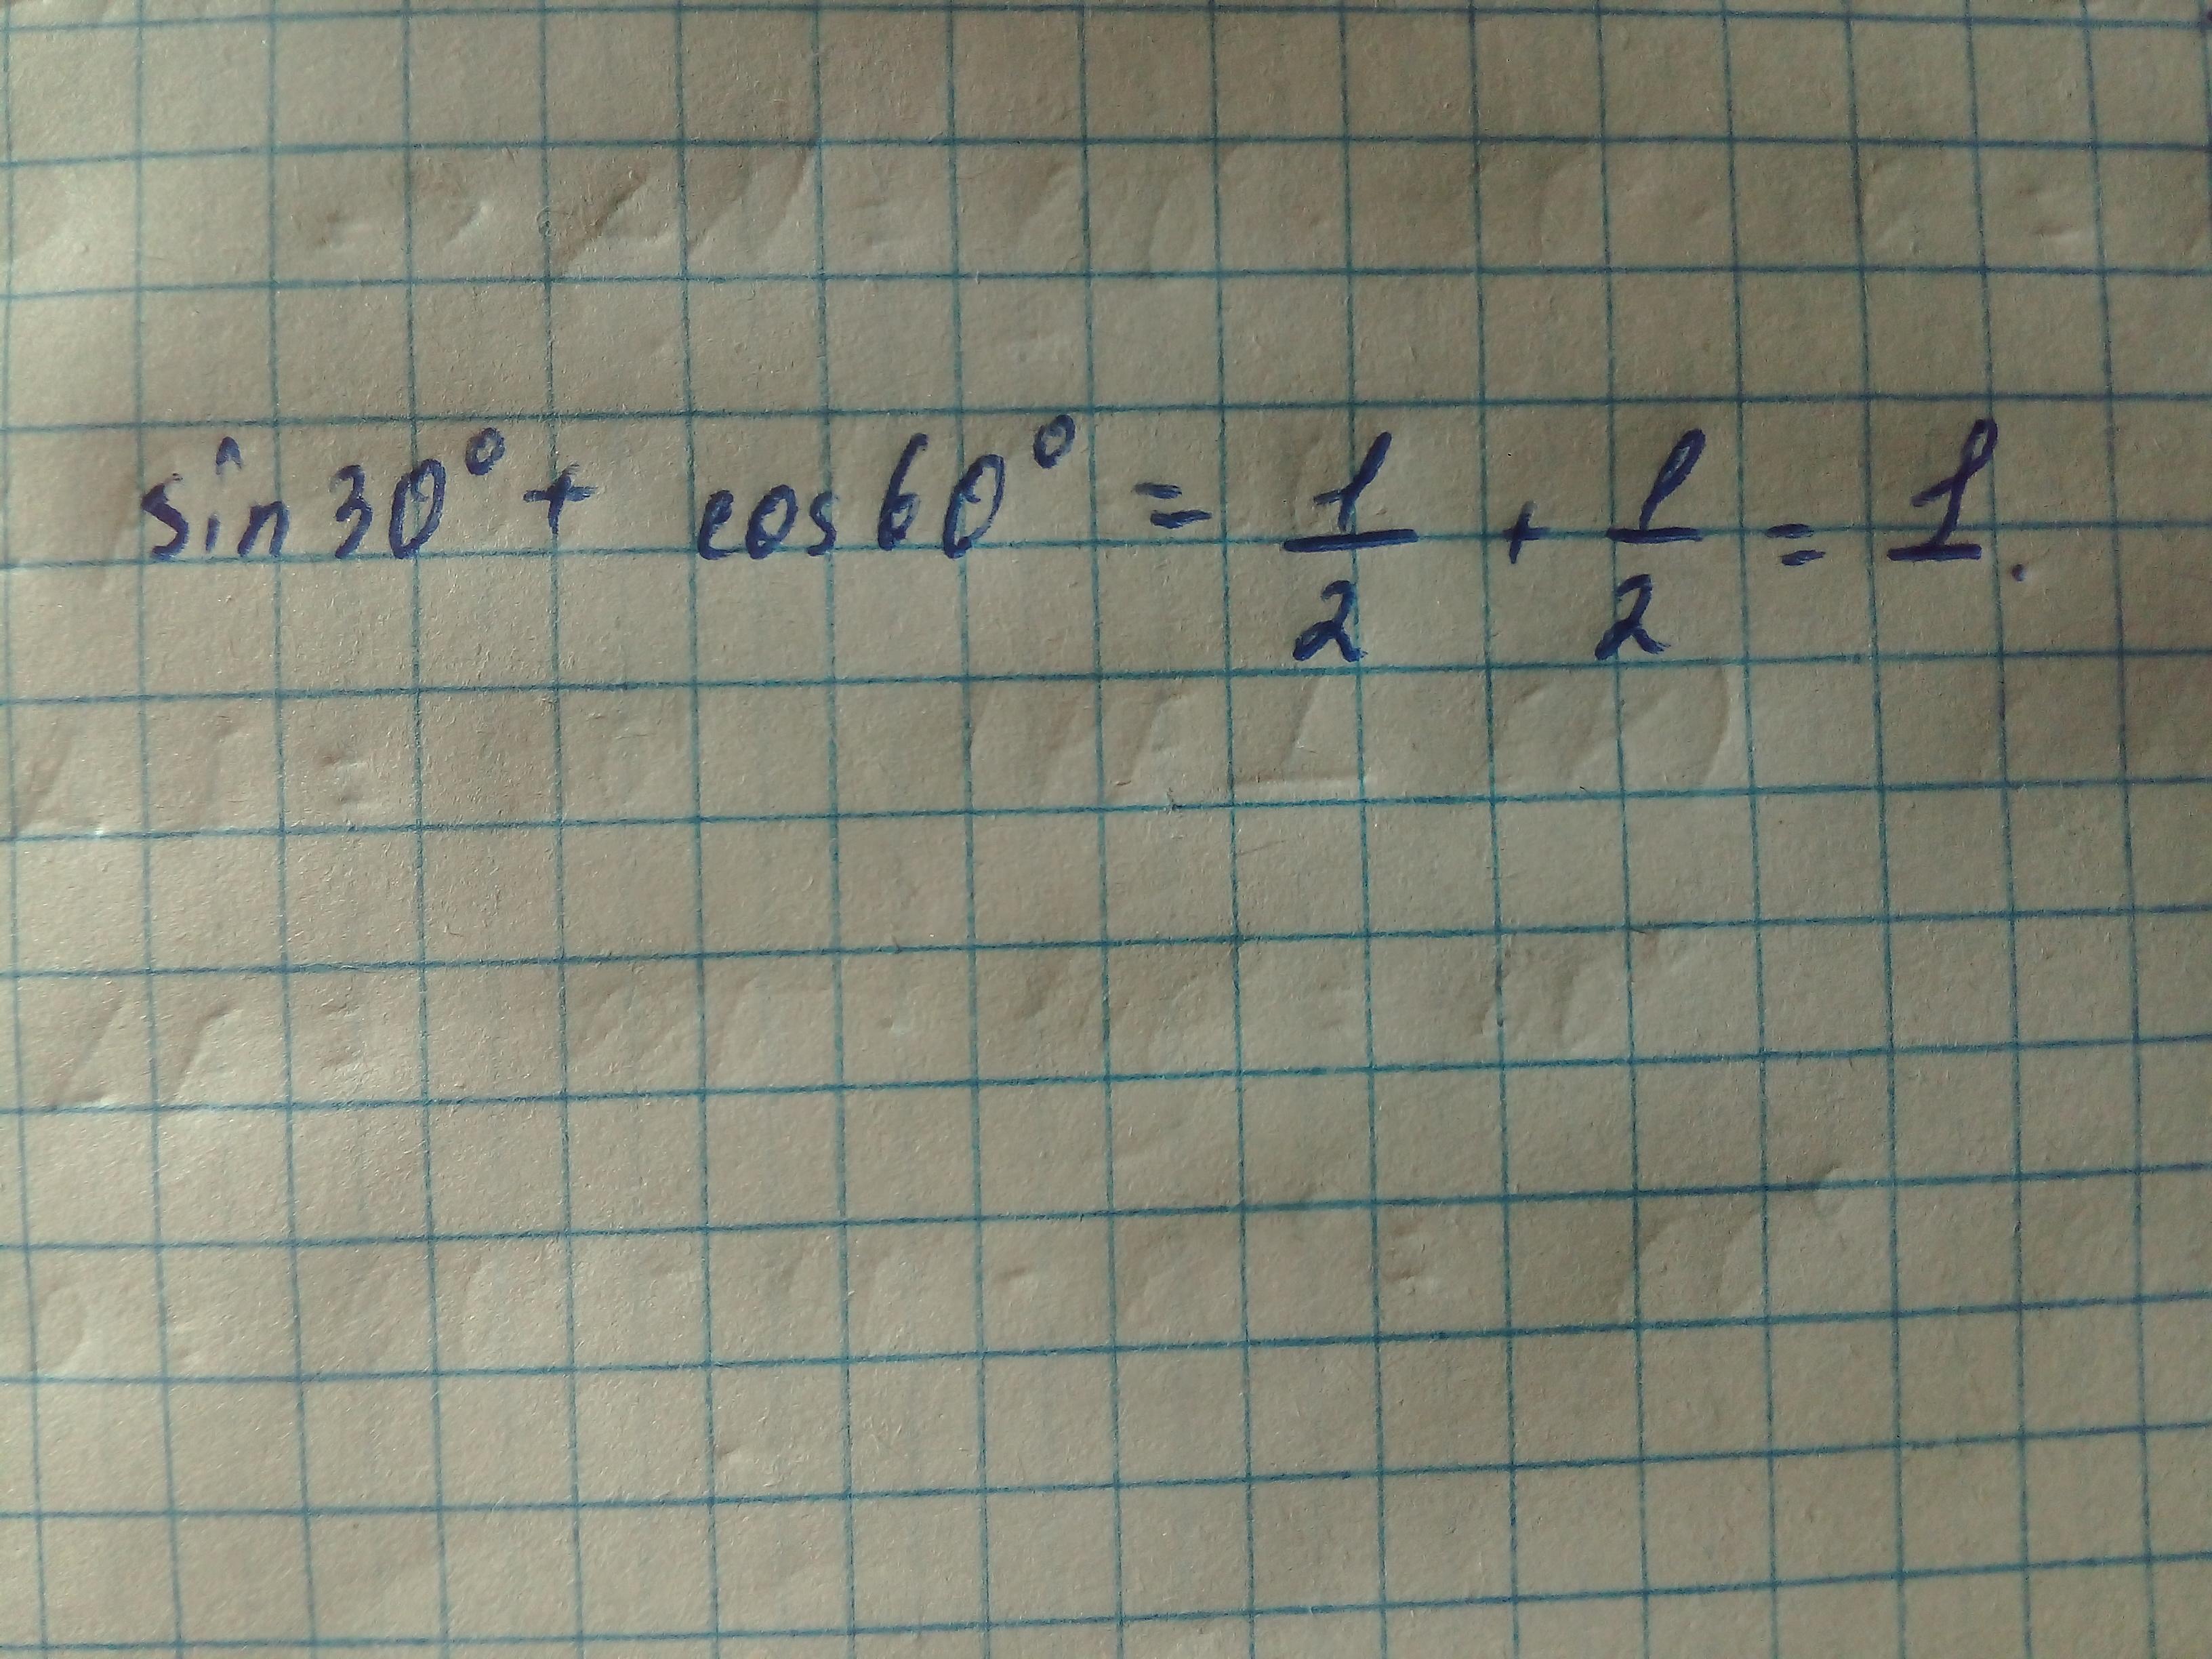 sin 30° + cos 60° = 1/2 + 1/2 = 1.